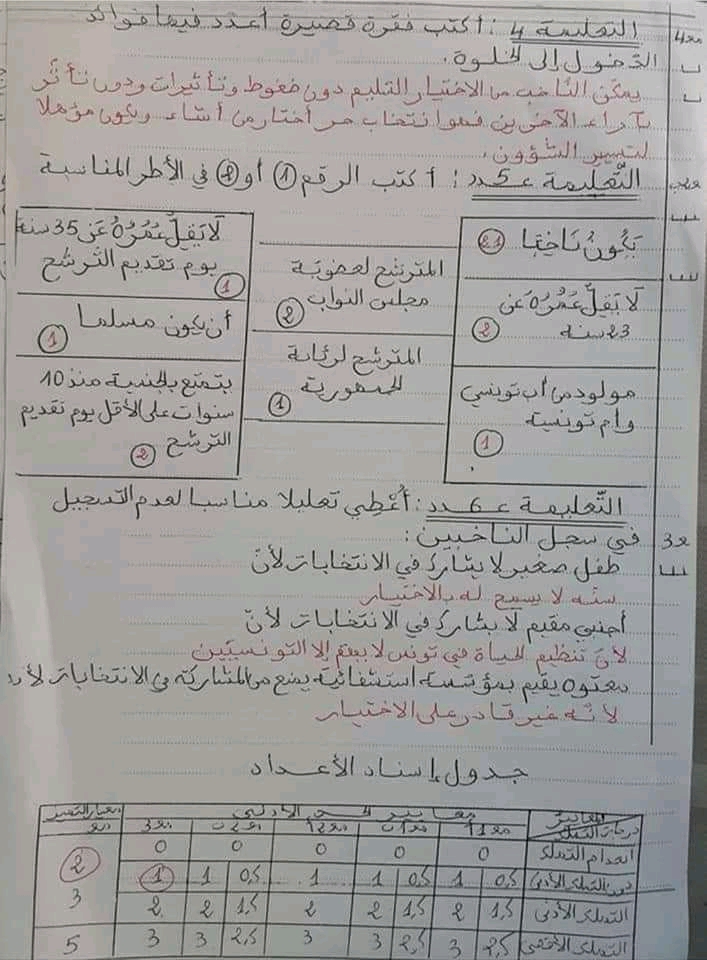 التعليمة 4 : أكتب فقرة قصيرة أعدد فيها فوائد
مع4
الدّخول إلى الخلوة.
يمكّن النّاخب من الاختيار السّليم دون ضغوط وتأثيرات ودون تأثّر
بآراء الآخرين فهو انتخاب حر أختار من أشاء ويكون مؤهلا
لتسيير الشؤون.
التّعليمة عـ5ـدد : أكتب الرقم 1 أو 2 في الأطر المناسبة
يَكُونُ نَاخِبًا 21
لَا يَقِلُّ عُمُرُهُ عَن
23 سنة 2
مولود من أب تونسي
وأم تونسية
1
المترشح لعضويّة
مجلس النواب
2
المترشح لرئاسة
الجمهورية
1
لَا يَقِلُّ عُمُرُهُ عَن 35 سنة
يوم تقديم الترشح
1
أن يكون مسلما
1
يتمتع بالجنسية منذ 10
سنوات على الأقل يوم تقديم
الترشح 2
التّعليمة عـ6ـدد : أُعْطِي تعليلا مناسبا لعدم التسجيل
مع3
في سجل الناخبين :
طفل صغير لا يشارك في الانتخابات لأنّ
سنّه لا يسمح له بالاختيار
أجنبي مقيم لا يشارك في الانتخابات لأنّ
لأنّ تنظيم الحياة في تونس لا يهم إلا التونسيّين
معتوه يقيم بمؤسسة استشفائية يمنع من المشاركة في الانتخابات لأنه
لأنّه غير قادر على الاختيار
جدول إسناد الأعداد
المعايير
درجات التملك
معايير الحد الأدنى
معيار التميز
مع1 مع1 مع2 مع2 مع3
انعدام التملك 0 0 0 0 0
دون التملك الأدنى 0,5 1 0,5 1 1 0,5 1 1 2
التملك الأدنى 1,5 2 1,5 2 2 1,5 2 2 3
التملك الأقصى 2,5 3 2,5 3 3 2,5 3 3 5